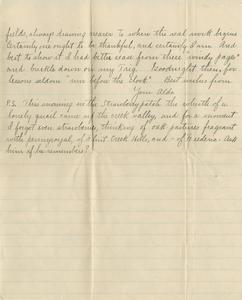 fields, always drawing nearer to where the real work begins
Certainly one ought to be thankful, and certainly I am. And
best to show it I had better cease from these windy pages
and buckle down on my Trig. Goodnight then, for
lessons seldom "run before the clock". Best wishes from
Your Aldo
P.S. This morning in the Strawberry patch the whistle of a
lonely quail came up the creek valley, and for a moment
I forgot even strawberries, thinking of oak pastures fragrant
with pennyroyal, of Flint Creek Hills, and - of Frederic. Ask
him if he remembers?